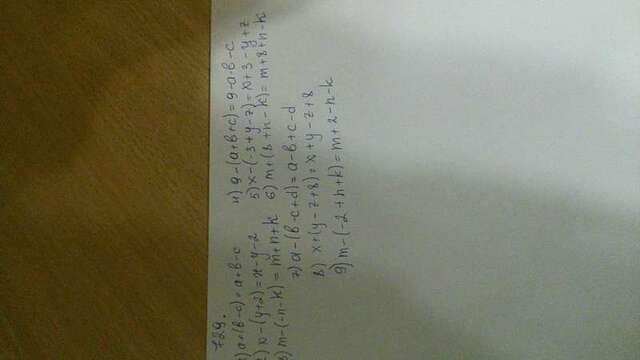 729.
1) a+(b-c)=a+b-c
4) 9-(a+b+c)=9-a-b-c
2) x-(y+2)=x-y-2
5) x-(-3+y-z)=x+3-y+z
3) m-(-n-k)=m+n+k
6) m+(8+n-k)=m+8+n-k
7) a-(b-c+d)=a-b+c-d
8) x+(y-z+8)=x+y-z+8
9) m-(-2+n+k)=m+2-n-k